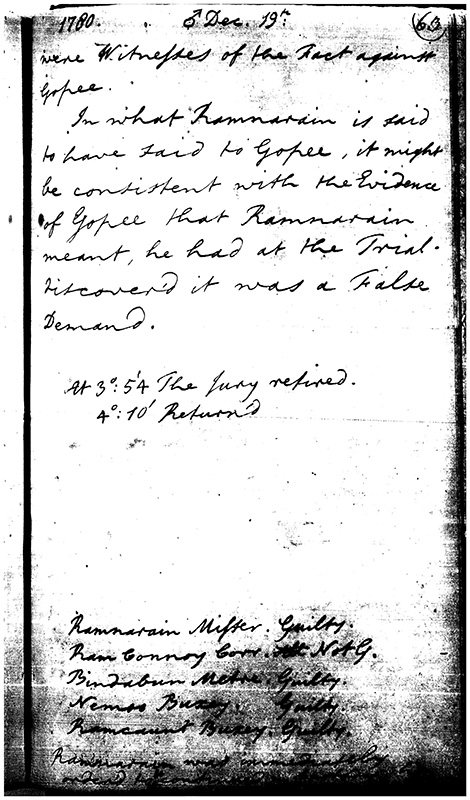 1780. ♂ Dec. 19th. 63
were Witnesses of the Fact against
Gopee.
In what Ramnarain is said
to have said to Gopee, it might
be consistent with the Evidence
of Gopee that Ramnarain
meant, he had at the Trial
discover'd it was a False
Demand.
At 3°: 54' The Jury retired.
4°: 10' Return'd
Ramnarain Misser. Guilty.
Ram Connoy Corr. Not G.
Bindabun Metre. Guilty.
Nemoo Buxey. Guilty.
Ramcaunt Buxey. Guilty.
Ramnarain was immediately